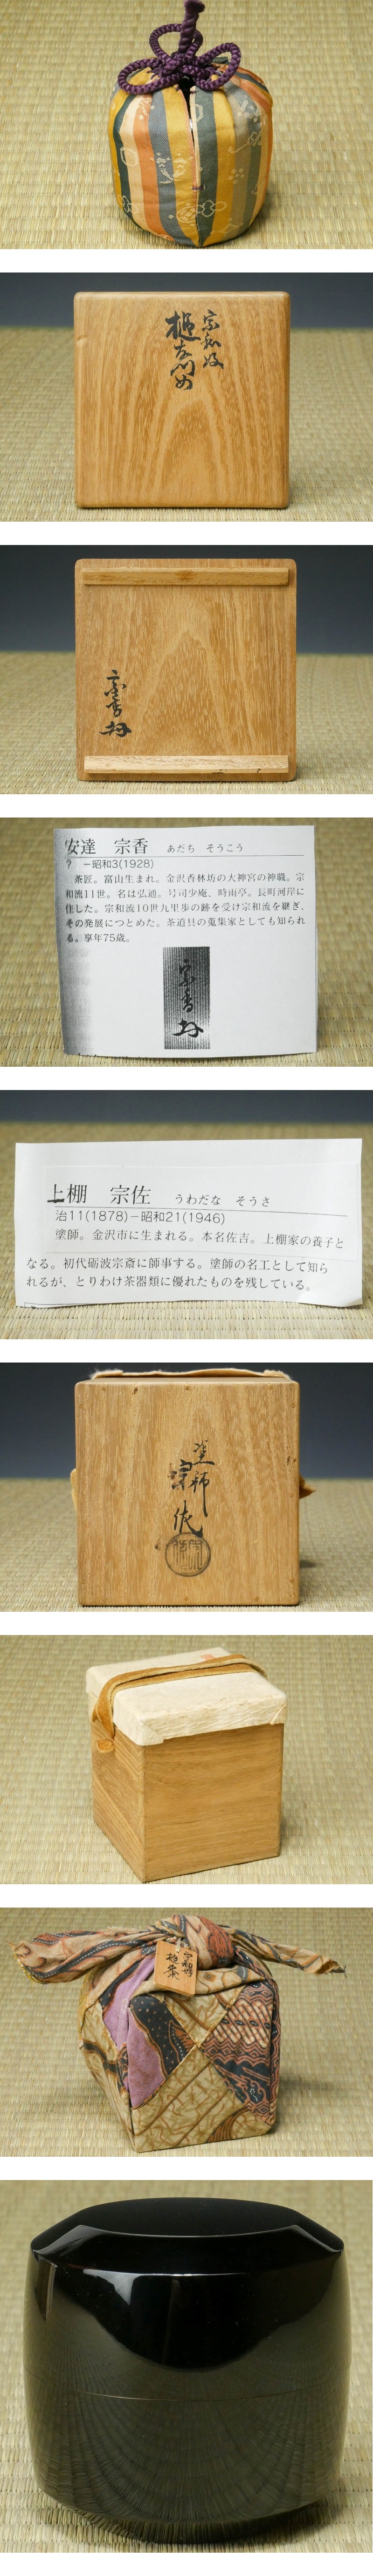 宗和好
安達　宗香　あだち　そうこう
？　−昭和3(1928)
茶匠。富山生まれ。金沢香林坊の大神宮の神職。宗
和流11世。名は弘通。号司少庵、時雨亭。長町河岸に
住した。宗和流10世九里歩の跡を受け宗和流を継ぎ、
その発展につとめた。茶道具の蒐集家としても知られ
る。享年75歳。
宗香
上棚　宗佐　うわだな　そうさ
治11(1878)−昭和21(1946)
塗師。金沢市に生まれる。本名佐吉。上棚家の養子と
なる。初代砺波宗斎に師事する。塗師の名工として知ら
れるが、とりわけ茶器類に優れたものを残している。
塗師
宗佐
宗和好